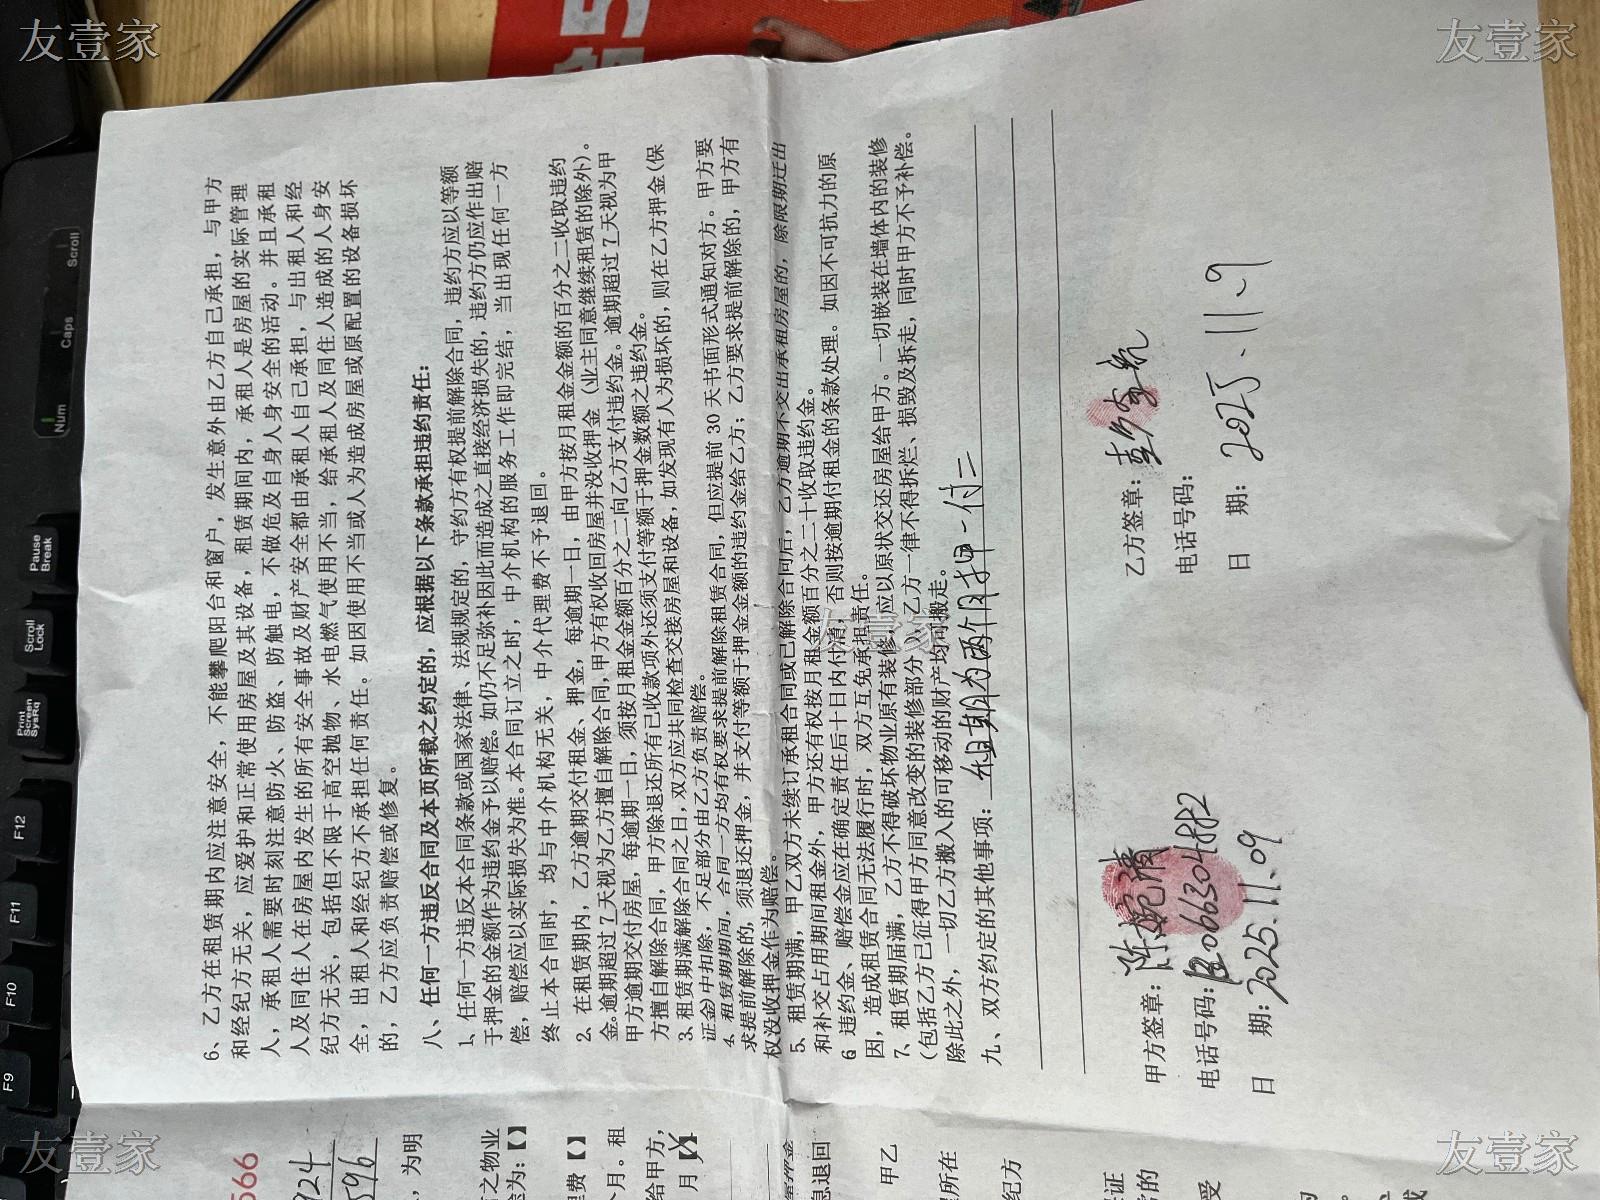 友壹家
友壹家
6、乙方在租赁期内应注意安全，不能攀爬阳台和窗户，发生意外由乙方自己承担，与甲方
和经纪方无关，应爱护和正常使用房屋及其设备，租赁期间内，承租人是房屋的实际管理
人，承租人需要时刻注意防火、防盗、防触电，不做危及自身人身安全的活动。并且承租
人及同住人在房屋内发生的所有安全事故及财产安全都由承租人自己承担，与出租人和经
纪方无关，包括但不限于高空抛物、水电燃气使用不当，给承租人及同住人造成的人身安
全，出租人和经纪方不承担任何责任。如因使用不当或人为造成房屋或原配置的设备损坏
的，乙方应负责赔偿或修复。
八、任何一方违反合同及本页所载之约定的，应根据以下条款承担违约责任：
1、任何一方违反本合同条款或国家法律、法规规定的，守约方有权提前解除合同，违约方应以等额
于押金的金额作为违约金予以赔偿。如仍不足弥补因此而造成之直接经济损失的，违约方仍应作出赔
偿，赔偿应以实际损失为准。本合同订立之时，中介机构的服务工作即完结，当出现任何一方
终止本合同时，均与中介机构无关，中介代理费不予退回。
2、在租赁期内，乙方逾期交付租金、押金，每逾期一日，由甲方按月租金金额的百分之二收取违约
金。逾期超过7天视为乙方擅自解除合同，甲方有权收回房屋并没收押金（业主同意继续租赁的除外）。
甲方逾期交付房屋，每逾期一日，须按月租金金额百分之二向乙方支付违约金。逾期超过7天视为甲
方擅自解除合同，甲方除退还所有已收款项外还须支付等额于押金数额之违约金。
3、租赁期满解除合同之日，双方应共同检查交接房屋和设备，如发现有人为损坏的，则在乙方押金(保
证金)中扣除，不足部分由乙方负责赔偿。
4、租赁期期间，合同一方均有权要求提前解除租赁合同，但应提前30天书面形式通知对方。甲方要
求提前解除的，须退还押金，并支付等额于押金金额的违约金给乙方；乙方要求提前解除的，甲方有
权没收押金作为赔偿。
5、租赁期满，甲乙双方未续订承租合同或已解除合同后，乙方逾期不交出承租房屋的，除限期迁出
和补交占用期间租金外，甲方还有权按月租金额百分之二十收取违约金。
6 违约金、赔偿金应在确定责任后十日内付清，否则按逾期付租金的条款处理。如因不可抗力的原
因，造成租赁合同无法履行时，双方互免承担责任。
7、租赁期届满，乙方不得破坏物业原有装修，应以原状交还房屋给甲方。一切嵌装在墙体内的装修
（包括乙方已征得甲方同意改变的装修部分），乙方一律不得拆烂、损毁及拆走，同时甲方不予补偿。
除此之外，一切乙方搬入的可移动的财产均可搬走。
九、双方约定的其他事项：租期为两个月押一付二
甲方签章：陈婉清
电话号码：13066304882
日 期：2025.11.09
乙方签章：
电话号码：
日 期：2025.11.9
友壹家
友壹家
566
924
596
，为明
之物业
为：【】
理费【】
个月。租
给甲方，
月
息退回
甲乙
所在
纪方
证
的
受
Num
Caps
Scroll
Pause
Break
Scroll
Lock
Print
Screen
SysRq
F12
F11
F10
F9